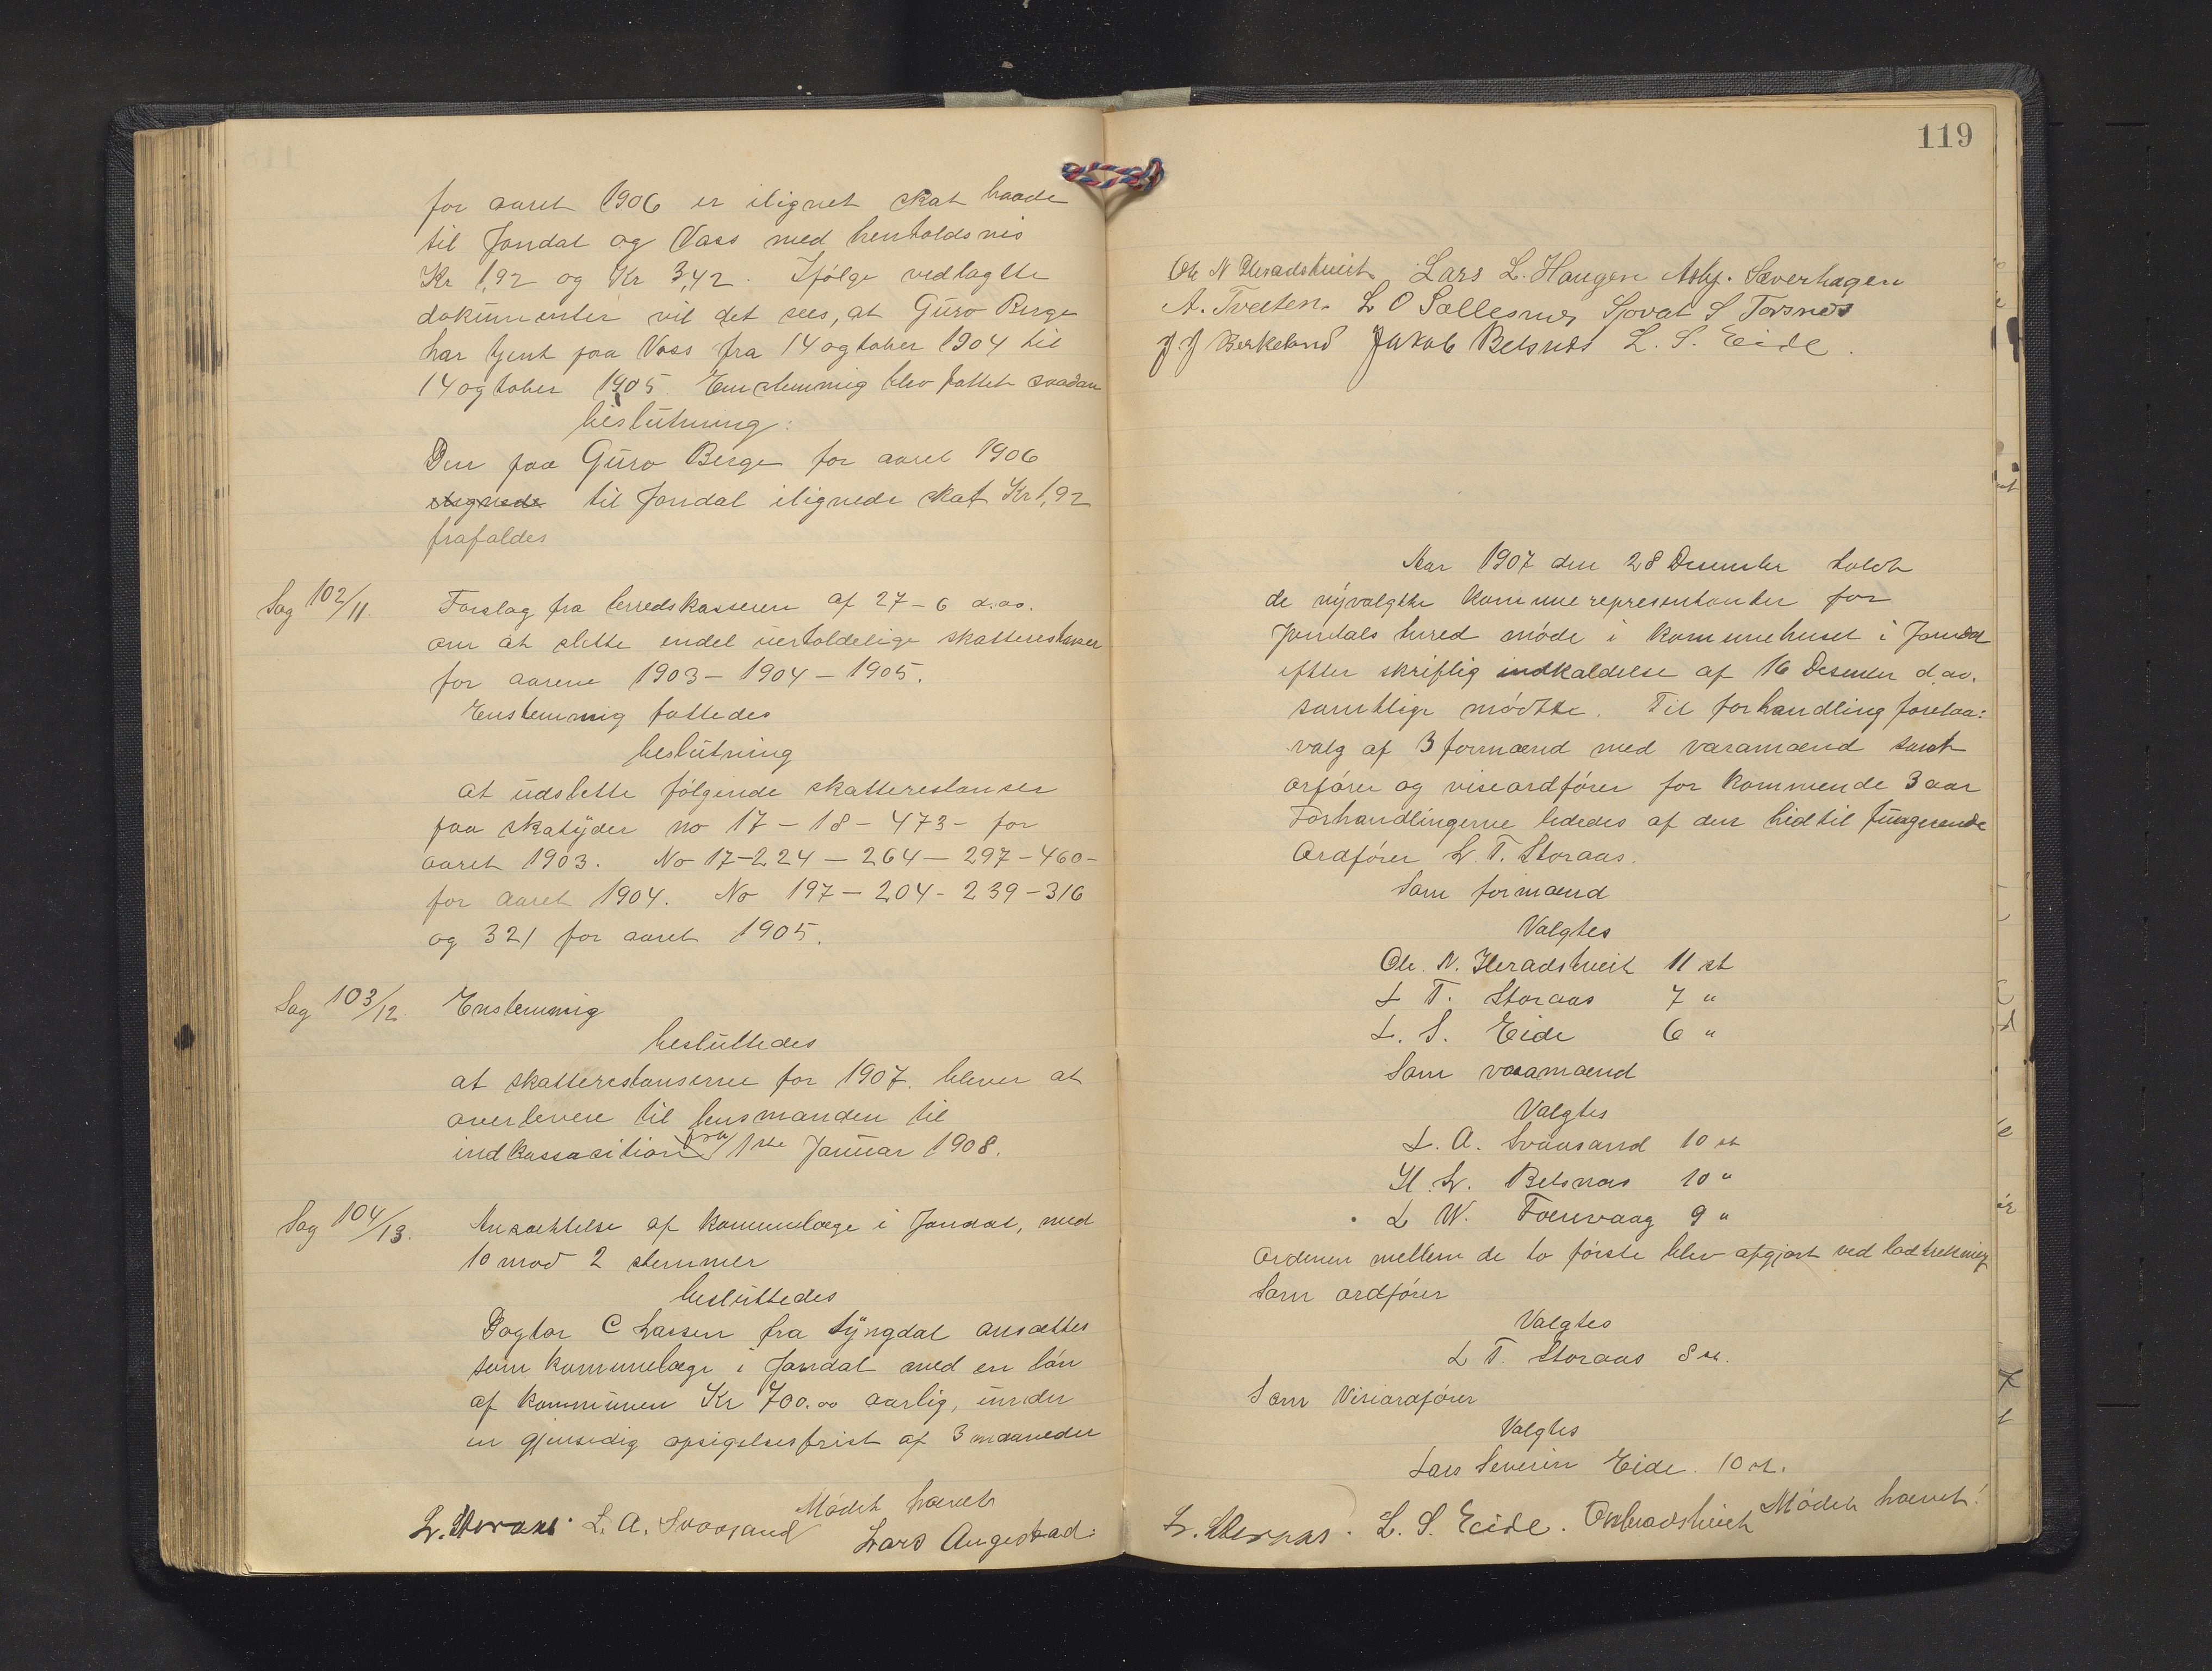 for aaret 1906 er ilignet skat baade
til Jondal og Vass med henholdsvis
Kr 1,92 og Kr 3,42. Ifølge vedlagte
dokumenter vil det sees, at Guro Berge
har tjent paa Voss fra 14 ogtober 1904 til
14 ogtober 1905. Enstemmig blev fattet saadan
beslutning:
Den paa Guro Berge for aaret 1906
ilignede til Jondal ilignede skat Kr 1,92
frafaldes
Sag 102/11
Forslag fra herredskasseren af 27-6 d.aa.
om at slette endel uerholdelige skatterestanser
for aarene 1903 - 1904 - 1905.
Enstemmig fattedes
beslutning
at udslette følgende skatterestanser
paa skatyder no 17 - 18 - 473 - for
aaret 1903. No 17 - 224 - 264 - 297 - 460 -
for aaret 1904. No 197 - 204 - 239 - 316
og 321 for aaret 1905.
Sag 103/12.
Enstemmig
besluttedes
at skatterestanserne for 1907. bliver at
overlevere til lensmanden til
indkassasition fra 1ste Januar 1908.
Sag 104/13.
Ansættelse af kommunelæge i Jondal, med
10 mod 2 stemmer
besluttedes
Dogtor C Larsen fra Lyngdal ansættes
som kommunelæge i Jondal med en løn
af kommunen Kr 700.00 aarlig, under
en gjensidig opsigelsesfrist af 3 maaneder
Mødet hævet
L. Storaas. L. A. Svaasand Lars Augestad.
119
Ole N Heradstveit Lars L. Haugen Asbj. Sæverhagen
A. Tveiten. L O Sollesnes Sjovat S Torsnes
J J Berkeland Jakob Belsnes L. S. Eide.
Aar 1907 den 28 Desember holdt
de nyvalgte kommunerepresentanter for
Jondals herred møde i kommunehuset i Jondal
efter skriftlig indkaldelse af 16 Desember d.aa.
samtlige mødte. Til forhandling forelaa:
valg af 3 formænd med varamænd samt
orfører og viseordfører for kommende 3 aar
Forhandlingerne lededes af den hidtil fungerende
Ordfører L. T. Storaas.
Som formænd
Valgtes
Ole. N. Heradstveit 11 st
L T. Storaas 7 "
L. S. Eide 6 "
Som varamænd
Valgtes
L. A. Svaasand 10 st
H. L. Belsnes 10 "
L W. Folkevaag 9 "
Ordenen mellem de to første blev afgjort ved lodtrekning
Som ordfører
Valgtes
L T. Storaas 8 st.
Som Viseordfører
Valgtes
Lars Severin Eide. 10 st.
Mødet hævet!
L. Storaas. L. S. Eide. O N Heradstveit